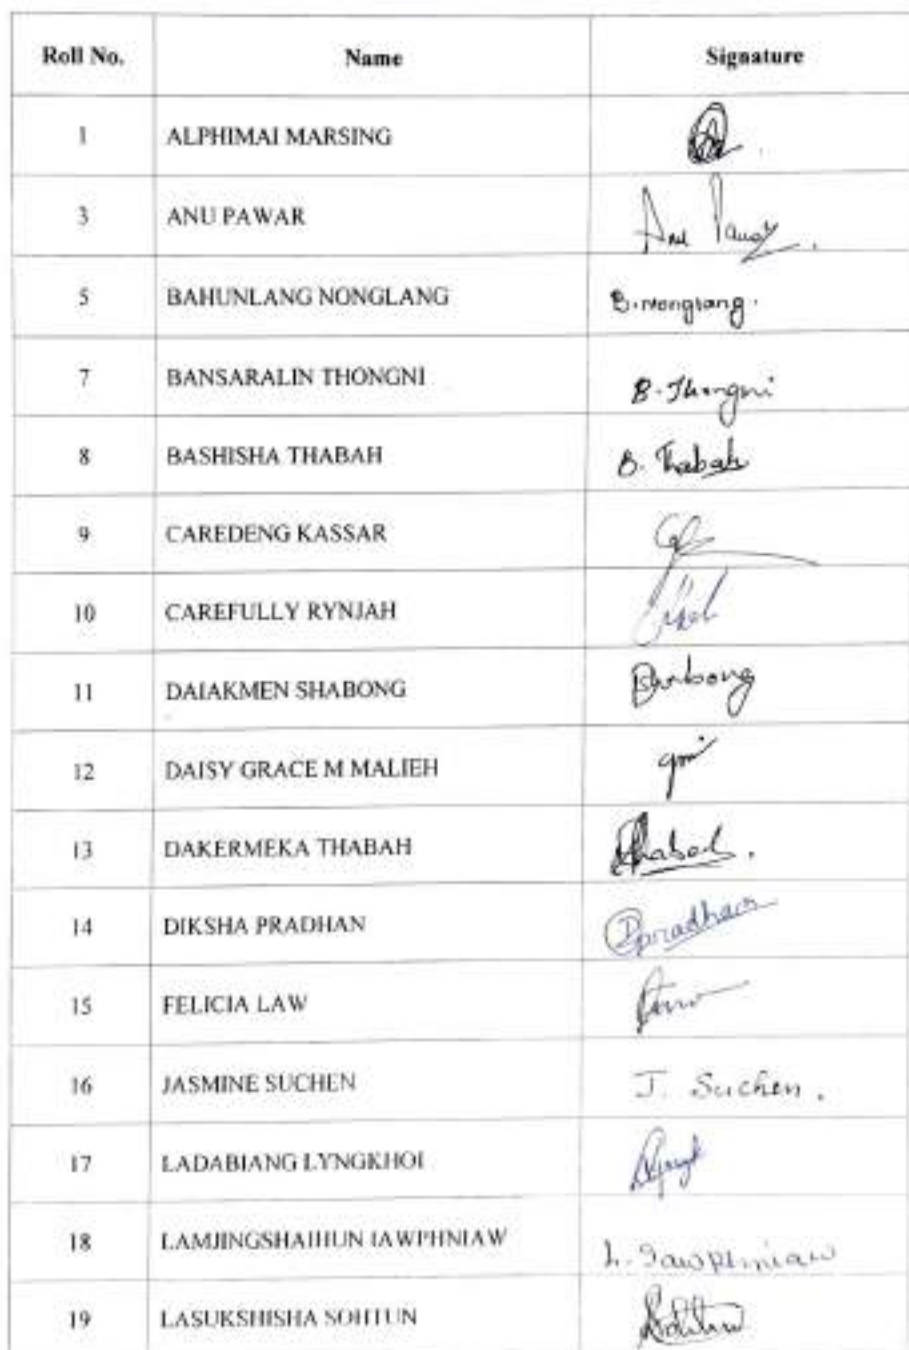 Roll No. Name Signature
1 ALPHIMAI MARSING
3 ANU PAWAR Anu Pawar
5 BAHUNLANG NONGLANG B. Nonglang.
7 BANSARALIN THONGNI B. Thongni
8 BASHISHA THABAH B. Thabah
9 CAREDENG KASSAR
10 CAREFULLY RYNJAH
11 DAIAKMEN SHABONG
12 DAISY GRACE M MALIEH
13 DAKERMEKA THABAH Thabah.
14 DIKSHA PRADHAN Dpradhan
15 FELICIA LAW
16 JASMINE SUCHEN J. Suchen.
17 LADABIANG LYNGKHOI
18 LAMJINGSHAIHUN IAWPHNIAW L. Iawphniaw
19 LASUKSHISHA SOHTUN